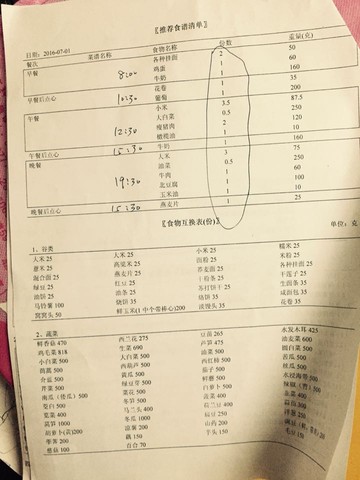 〖推荐食谱清单〗
日期：2016-07-01
餐次 菜谱名称 食物名称 份数 重量(克)
早餐 各种挂面 2 50
鸡蛋 1 60
8:00 牛奶 1 160
花卷 1 35
早餐后点心 10:30 葡萄 1 200
午餐 小米 3.5 87.5
大白菜 0.5 250
12:30 瘦猪肉 2 120
橄榄油 1 10
午餐后点心 15:30 牛奶 1 160
晚餐 大米 3 75
油菜 0.5 250
19:30 牛肉 1 60
北豆腐 1 100
玉米油 1 10
晚餐后点心 15:30 燕麦片 1 25
〖食物互换表(份)〗
单位：克
1、谷类
大米 25 大米 25 小米 25 糯米 25
薏米 25 高粱米 25 面粉 25 米粉 25
混合面 25 燕麦片 25 荞麦面 25 各种挂面 25
绿豆 25 红豆 25 干粉条 25 干莲子 25
油饼 25 油条 25 苏打饼干 25 生面条 25
马铃薯 100 烧饼 35 烙饼 35 咸面包 35
窝窝头 50 鲜玉米(1 中个带棒心)200 淡馒头 35 花卷 35
2、蔬菜
鲜香菇 470 西兰花 275 豆苗 265 水发木耳 425
鸡毛菜 818 生菜 690 芦笋 475 油麦菜 600
小白菜 500 大白菜 500 油菜 500 圆白菜 500
茼蒿 500 西葫芦 500 西红柿 500 苦瓜 500
芥蓝 500 黄瓜 500 茄子 500 丝瓜 500
芹菜 500 绿豆芽 500 鲜蘑 500 水浸海带 500
南瓜（倭瓜）500 菜花 500 白萝卜 500 辣椒（青）500
莴笋 1000 冬瓜 1000 扁豆 250
胡萝卜(黄)200 凉薯 200 山药 150
荸荠 200 藕 150 芋头 150 毛豆 150
慈菇 100 百合 70